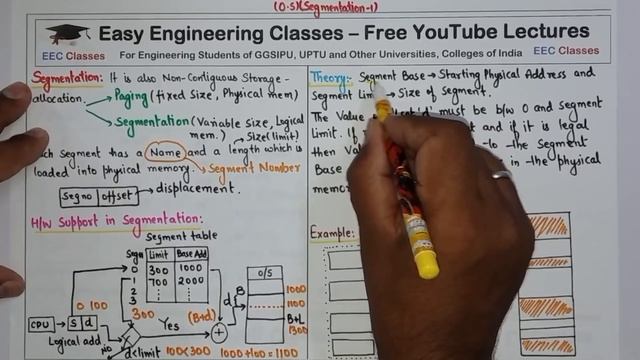 (O.S)(Segmentation-1)
Easy Engineering Classes – Free YouTube Lectures
EEC Classes
For Engineering Students of GGSIPU, UPTU and Other Universities, Colleges of India
EEC Classes
Segmentation: It is also Non-Contiguous Storage-
allocation.
Paging (fixed Size, Physical mem)
Segmentation (Variable Size, Logical
mem.)
Size (limit)
Each Segment has a Name and a length which is
loaded into physical memory.
Segment Number
Seg no offset → displacement.
H/W Support in Segmentation:
Segment table
Seg no Limit Base Add
0 300 1000
1 700 2000
2
3
0 100
300
Yes
(B+d)
CPU → s d
Logical add.
No
d<limit 100<300
+
1000+100=1100
d
B
O/S
1000
1100
B+L
1300
Theory:- Segment Base → Starting Physical Address and
Segment Limit → Size of Segment.
The Value of 'd' must be b/w 0 and Segment
Limit. If and if it is legal
then to the Segment
Base in the physical
memory
Example: